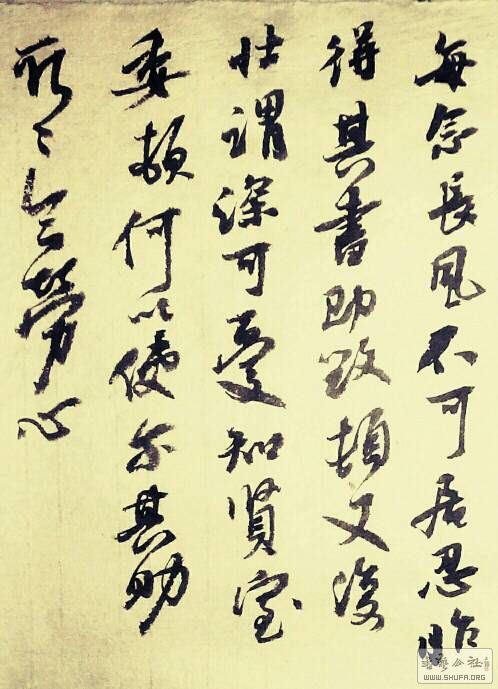 每念長風不可居忍昨
得其書即毀頓又復
壯謂深可憂知賢室
委頓何以使爾甚助
耿〻念勞心
書藝公社
WWW.SHUFA.ORG